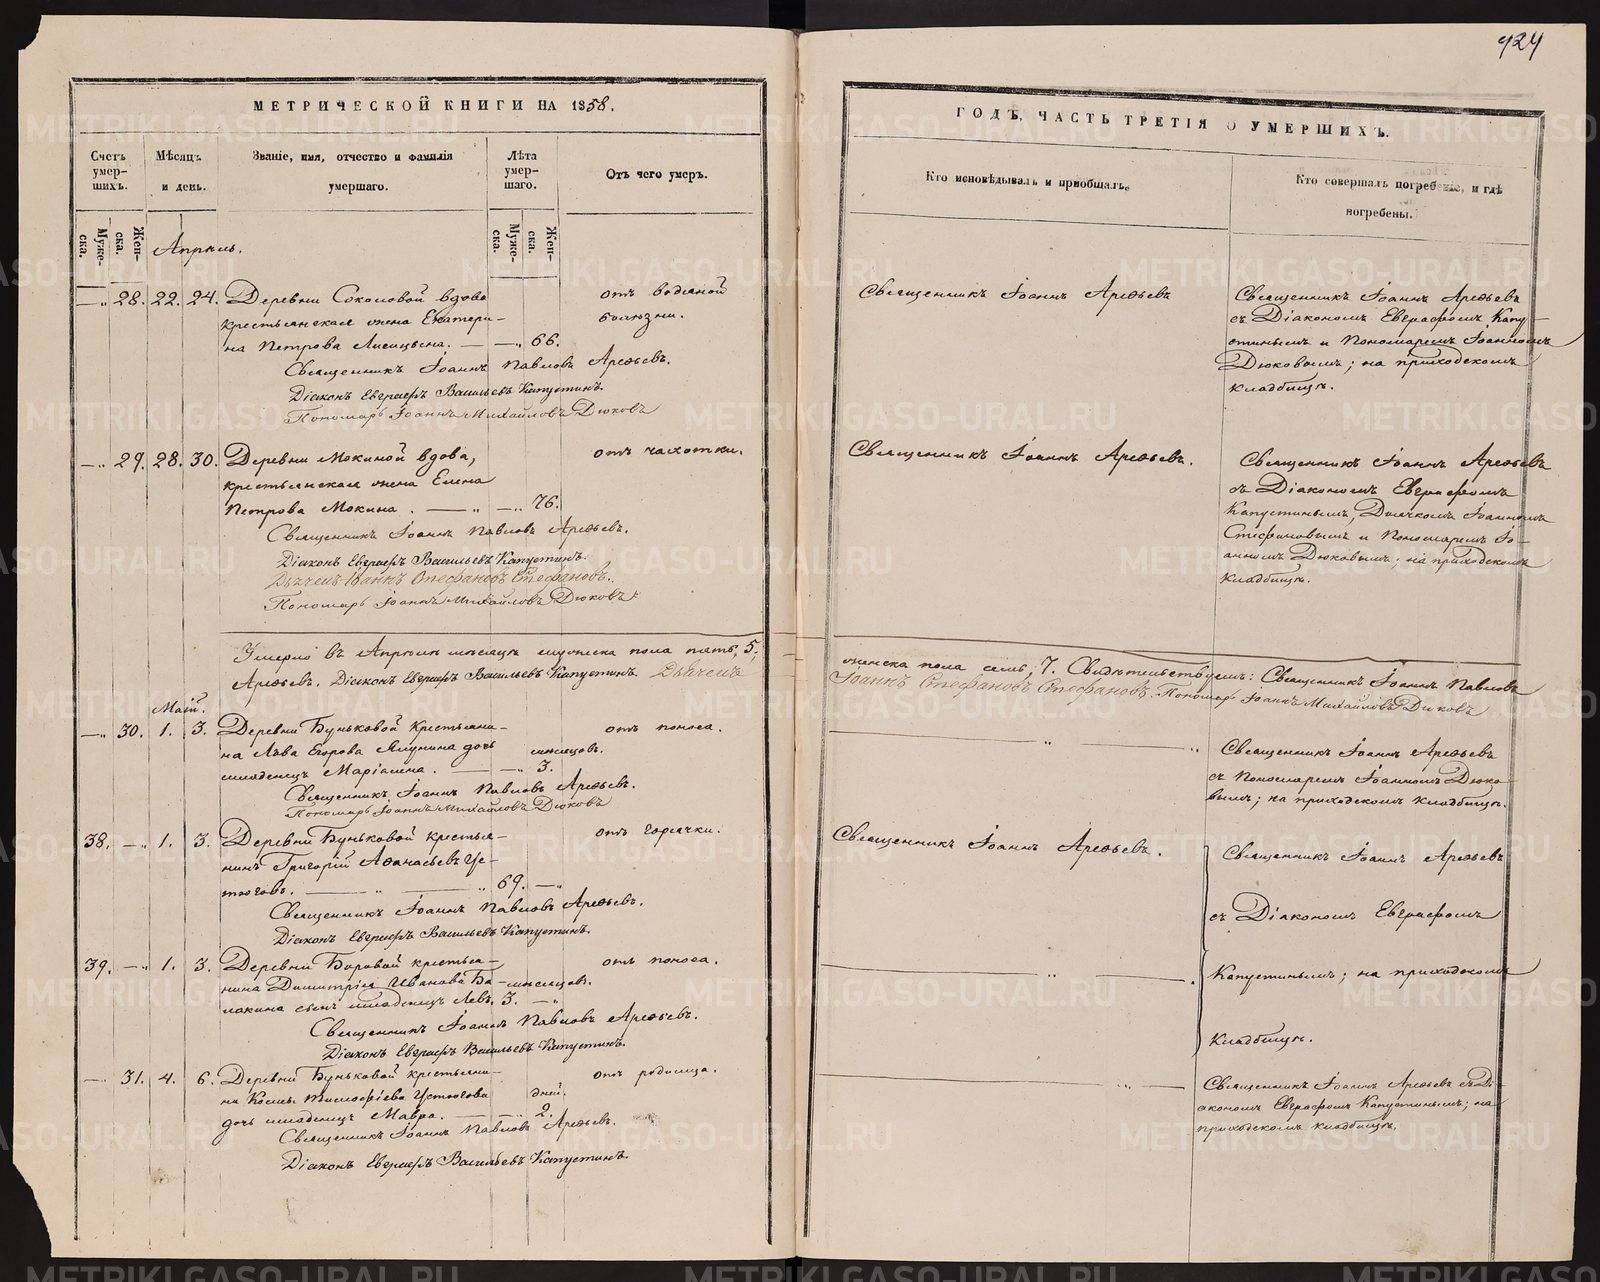 424
МЕТРИЧЕСКОЙ КНИГИ НА 1858.
Счетъ умер-шихъ.
Муже-ска.
Жен-ска.
Мѣсяцъ и день.
Званіе, имя, отчество и фамилія умершаго.
Лѣта умер-шаго.
Муже-ска.
Жен-ска.
Отъ чего умеръ.
Апрель.
28. 22. 24. Деревни Соколовой вдова
крестьянская жена Екатери-
на Петрова Лисицына. 66.
отъ водяной
болѣзни.
Священникъ Іоаннъ Павловъ Арефьевъ.
Діаконъ Евграфъ Васильевъ Капустинъ.
Пономарь Іоаннъ Михайловъ Дюковъ
29. 28. 30. Деревни Мокиной вдова,
крестьянская жена Елена
Петрова Мокина. 76.
отъ чахотки.
Священникъ Іоаннъ Павловъ Арефьевъ.
Діаконъ Евграфъ Васильевъ Капустинъ.
Дьячекъ Іоаннъ Стефановъ Стефановъ.
Пономарь Іоаннъ Михайловъ Дюковъ
Умерло въ Апрѣлѣ мѣсяцѣ мужеска пола пять, 5,
Арефьевъ. Діаконъ Евграфъ Васильевъ Капустинъ. Дьячекъ
Май.
30. 1. 3. Деревни Буньковой крестьяни-
на Льва Егорова Ялунина дочь
младенецъ Маріамна. мѣсяцовъ. 3.
отъ поноса.
Священникъ Іоаннъ Павловъ Арефьевъ.
Пономарь Іоаннъ Михайловъ Дюковъ
38. 1. 3. Деревни Буньковой крестья-
нинъ Григорій Аѳанасьевъ Ус-
тюговъ. 69.
отъ горячки.
Священникъ Іоаннъ Павловъ Арефьевъ.
Діаконъ Евграфъ Васильевъ Капустинъ.
39. 1. 3. Деревни Боровой крестья-
нина Димитрія Иванова Ба-
лакина сынъ младенецъ Левъ. мѣсяцовъ. 3.
отъ поноса.
Священникъ Іоаннъ Павловъ Арефьевъ.
Діаконъ Евграфъ Васильевъ Капустинъ.
31. 4. 6. Деревни Буньковой крестьяни-
на Космы Тимофѣева Устюгова
дочь младенецъ Мавра. дней. 2.
отъ родимца.
Священникъ Іоаннъ Павловъ Арефьевъ.
Діаконъ Евграфъ Васильевъ Капустинъ.
ГОДЪ, ЧАСТЬ ТРЕТІЯ О УМЕРШИХЪ.
Кто исповѣдывалъ и пріобщалъ.
Кто совершалъ погребеніе, и гдѣ погребены.
Священникъ Іоаннъ Арефьевъ
Священникъ Іоаннъ Арефьевъ
съ Діакономъ Евграфомъ Капу-
стинымъ и Пономаремъ Іоанномъ
Дюковымъ; на приходскомъ
кладбищѣ.
Священникъ Іоаннъ Арефьевъ.
Священникъ Іоаннъ Арефьевъ
съ Діакономъ Евграфомъ
Капустинымъ, Дьячкомъ Іоанномъ
Стефановымъ и Пономаремъ Іо-
анномъ Дюковымъ; на приходскомъ
кладбищѣ.
женска пола семь, 7. Свидѣтельствуемъ: Священникъ Іоаннъ Павловъ
Іоаннъ Стефановъ Стефановъ. Пономарь Іоаннъ Михайловъ Дюковъ
Священникъ Іоаннъ Арефьевъ
съ Пономаремъ Іоанномъ Дюко-
вымъ; на приходскомъ кладбищѣ.
Священникъ Іоаннъ Арефьевъ.
Священникъ Іоаннъ Арефьевъ
съ Діакономъ Евграфомъ
Капустинымъ; на приходскомъ
кладбищѣ.
Священникъ Іоаннъ Арефьевъ съ Ді-
акономъ Евграфомъ Капустинымъ; на
приходскомъ кладбищѣ.
METRIKI.GASO-URAL.RU